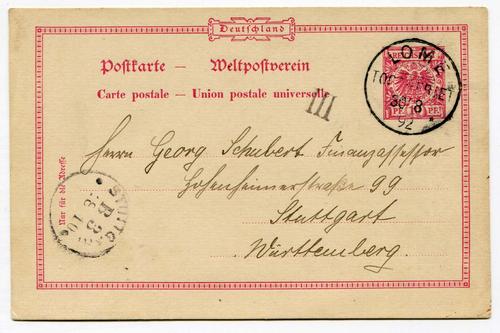 Deutschland
Postkarte – Weltpostverein
Carte postale – Union postale universelle
III
LOME
TOGOGEBIET
30/8
92
Nur für die Adresse
Herrn Georg Schubert Finanzassessor
Hohenheimerstraße 99
Stuttgart
Württemberg.
STUTTGART
B 3